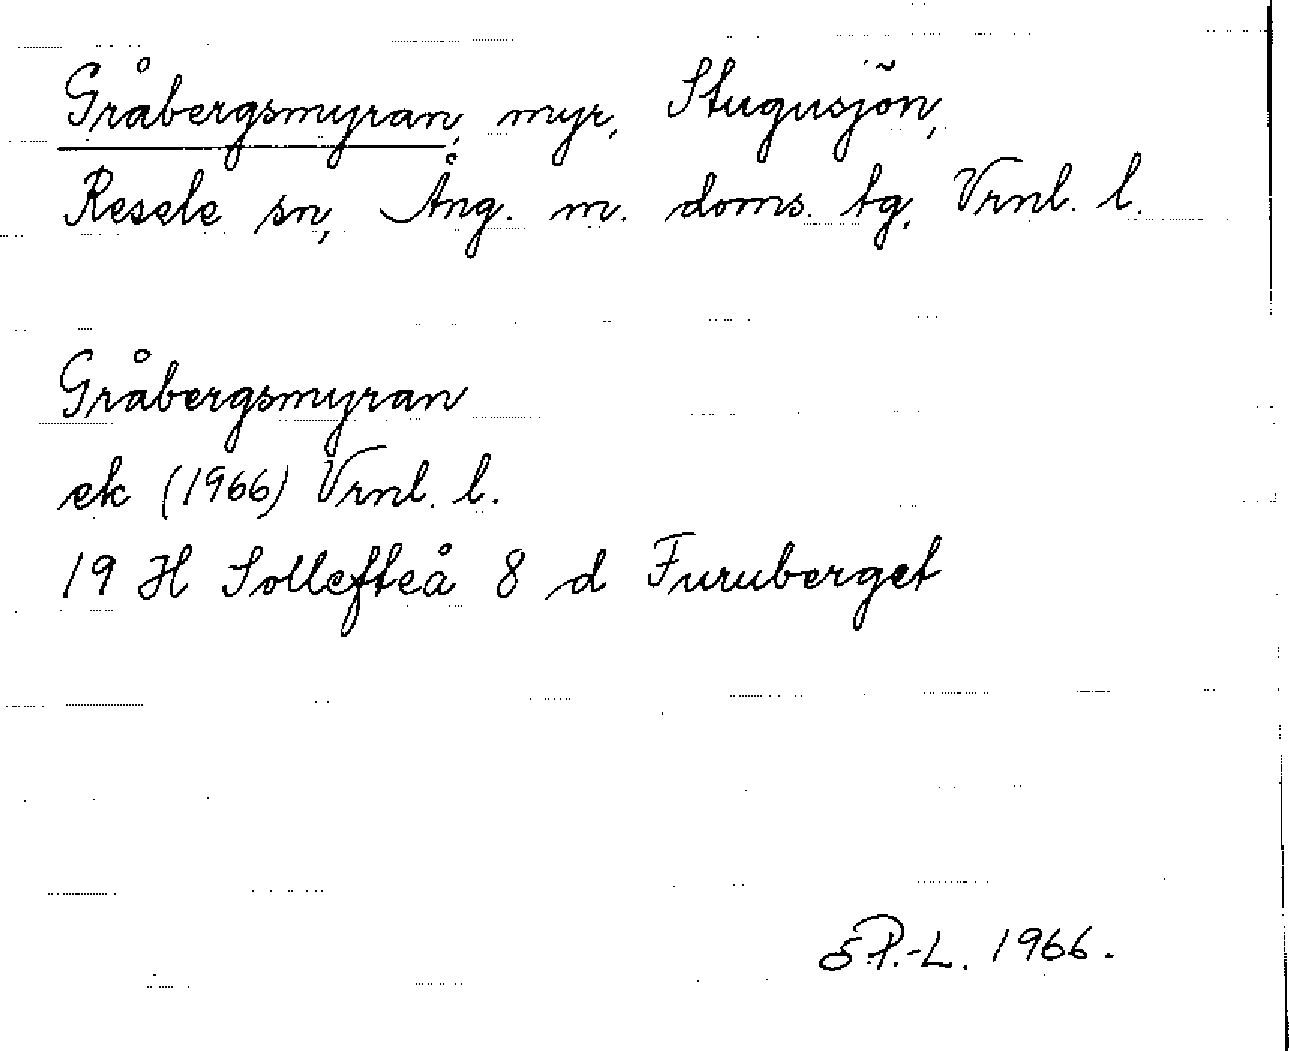 Gråbergsmyran, myr, Stugusjön,
Resele sn, Ång. m. doms. tg. Vrnl. l.
Gråbergsmyran
ek (1966) Vrnl. l.
19 H Sollefteå 8 d Furuberget
E.P.-L. 1966.